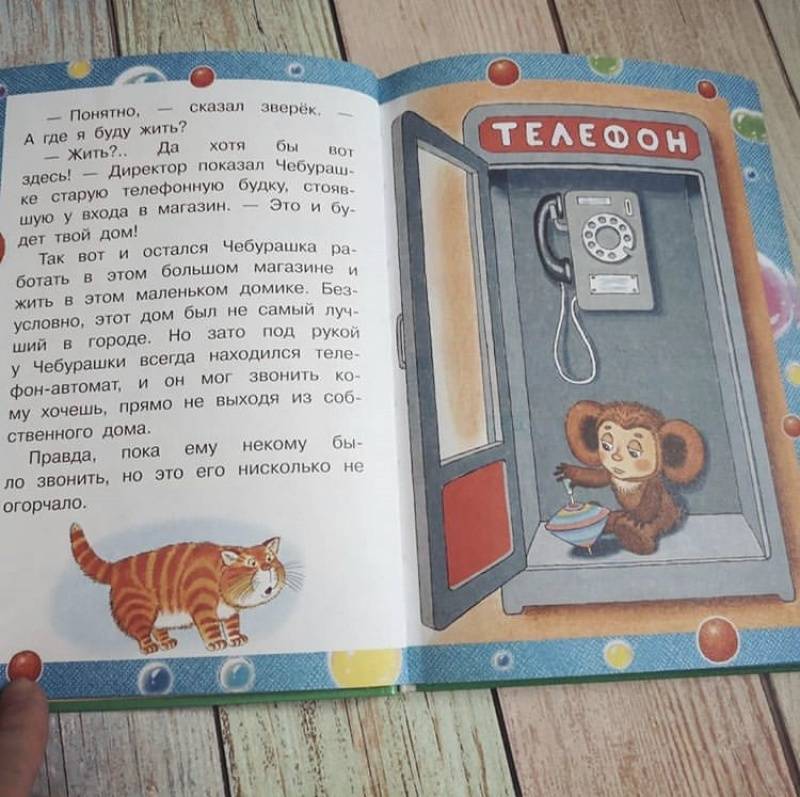 — Понятно, — сказал зверёк. —
А где я буду жить?
— Жить?.. Да хотя бы вот
здесь! — Директор показал Чебураш-
ке старую телефонную будку, стояв-
шую у входа в магазин. — Это и бу-
дет твой дом!
Так вот и остался Чебурашка ра-
ботать в этом большом магазине и
жить в этом маленьком домике. Без-
условно, этот дом был не самый луч-
ший в городе. Но зато под рукой
у Чебурашки всегда находился теле-
фон-автомат, и он мог звонить ко-
му хочешь, прямо не выходя из соб-
ственного дома.
Правда, пока ему некому бы-
ло звонить, но это его нисколько не
огорчало.
ТЕЛЕФОН